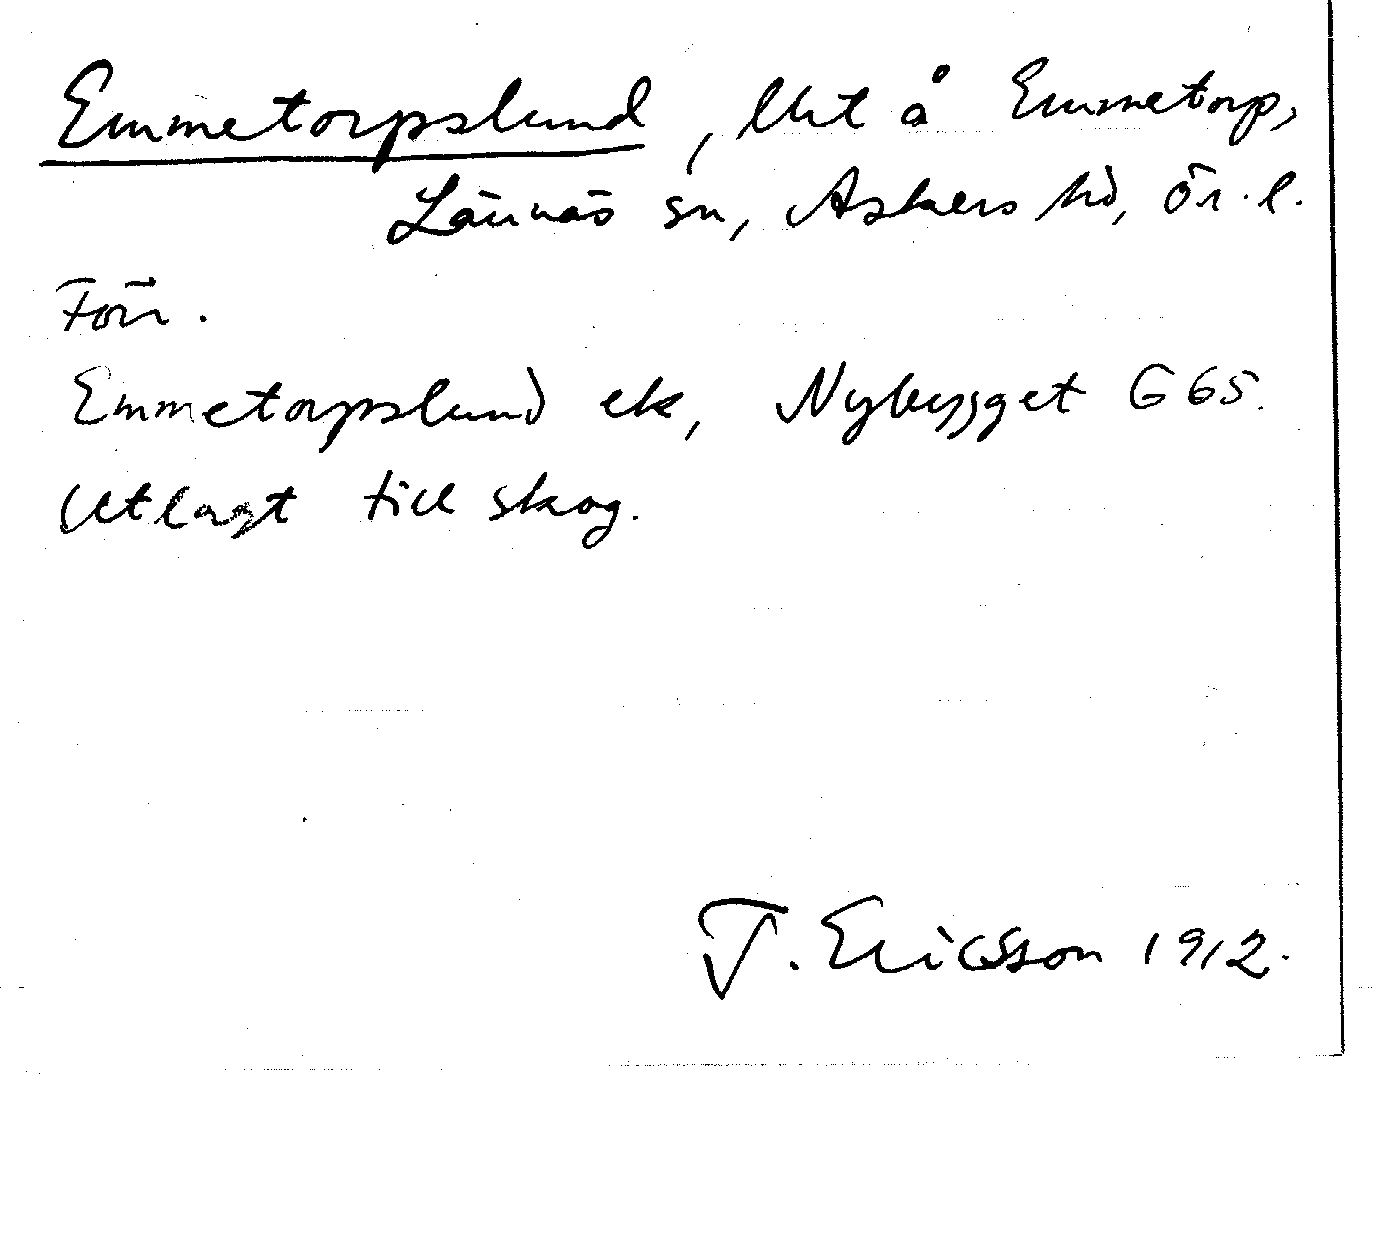 Emmetorpslund, lht å Emmetorp,
Lännäs sn, Askers hd, Ör. l.
Förr.
Emmetorpslund ek, Nybygget G 65.
Utlagt till skog.
T. Ericsson 1912.